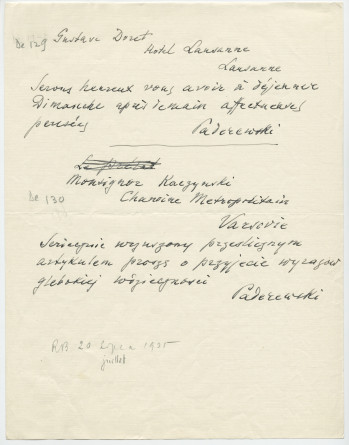 De 129 Gustave Doret
Hotel Lausanne
Lausanne
Serons heureux vous avoir à déjeuner
Dimanche après demain affectueuses
pensées
Paderewski
Monsignor Kaczynski
De 130
Chanoine Metropolitain
Varsovie
Serdecznie wzruszony prześlicznym
artykułem proszę o przyjęcie wyrazów
głębokiej wdzięczności
Paderewski
20 Lipca 1935
juillet